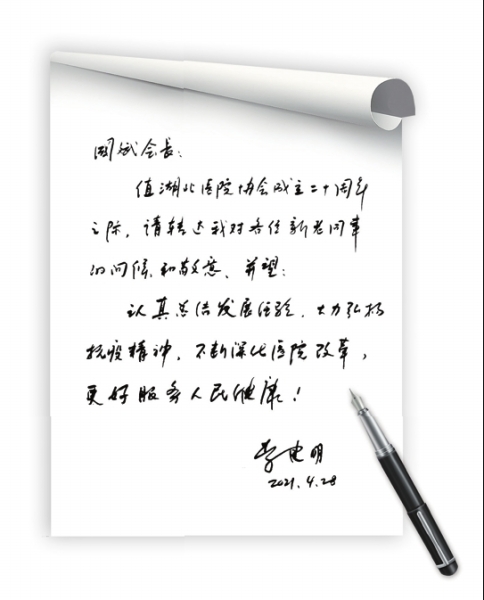 周斌会长：
值湖北医院协会成立二十周年
之际，请转达我对各位新老同事
的问候和敬意、并望：
认真总结发展经验，大力弘扬
抗疫精神，不断深化医院改革，
更好服务人民健康！
李建明
2021.4.28